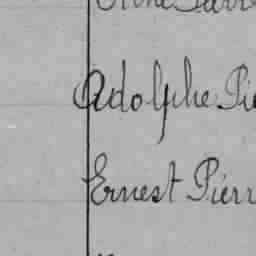 Adolphe Pie
Ernest Pierr